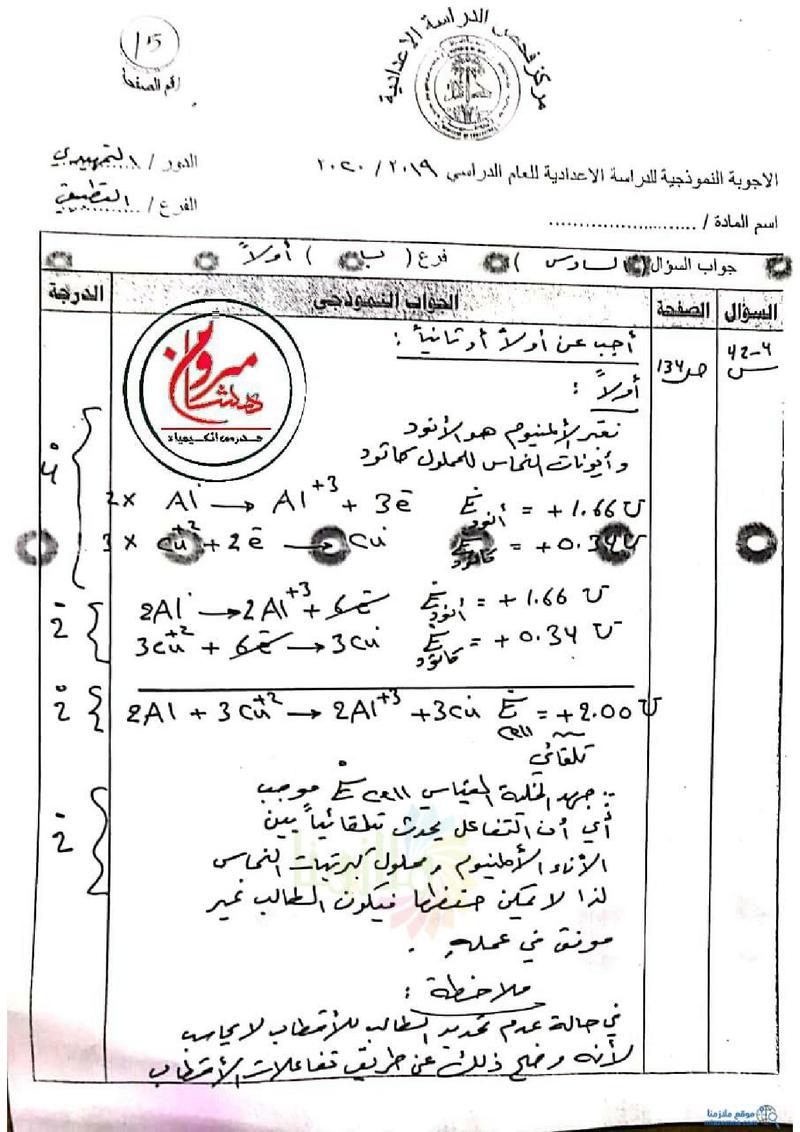 ١٥
رقم الصفحة
مركز فحص الدراسة الاعدادية
الاجوبة النموذجية للدراسة الاعدادية للعام الدراسي ٢٠١٩ / ٢٠٢٠
الدور / التمهيدي
اسم المادة / ......................
الفرع / التطبيقي
جواب السؤال ( السادس ) فرع ( ب ) أولاً
السؤال الصفحة الجواب النموذجي الدرجة
ص ١٣٤
أجب عن أولاً أو ثانياً :
أولاً :
نعتبر الألمنيوم هو الأنود
وأيونات النحاس للمحلول كاثود
2× Al → Al+3 + 3e E° أنود = +1.66 V
3× Cu+2 + 2e → Cu E° كاثود = +0.34 V
2Al → 2Al+3 + 6e E° أنود = +1.66 V
3Cu+2 + 6e → 3Cu E° كاثود = +0.34 V
2Al + 3Cu+2 → 2Al+3 + 3Cu E°cell = +2.00 V
تلقائي
∵ جهد الخلية القياسي E°cell موجب
أي أن التفاعل يحدث تلقائياً بين
الأناء الألمنيوم ومحلول كبريتات النحاس
لذا لا يمكن حفظها فيكون الطالب غير
موفق في عمله .
ملاحظة :
في حالة عدم تحديد الطالب للأقطاب لا يحاسب
لأنه وضح ذلك عن طريق تفاعلات الأقطاب
ميروان هشام
مدرس الكيمياء
ملازمنا
موقع ملازمنا